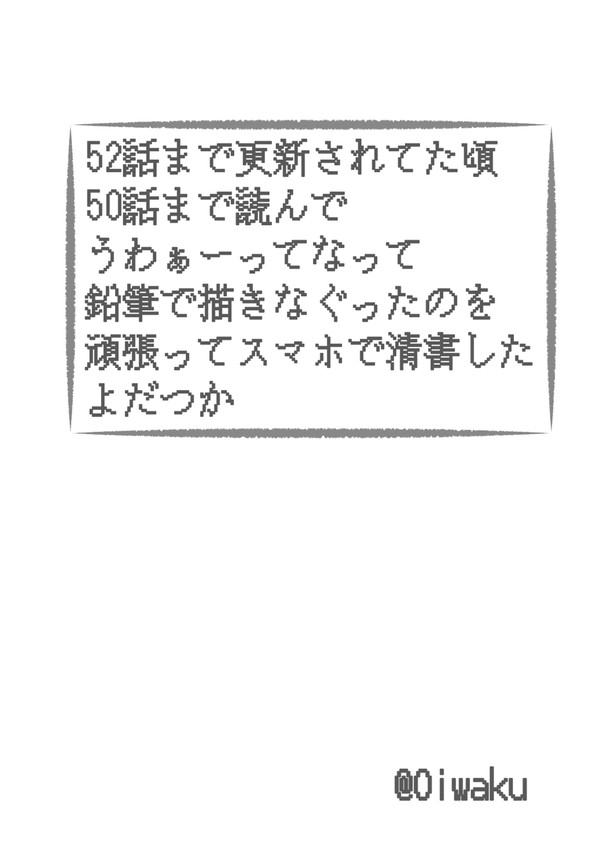 52話まで更新されてた頃
50話まで読んで
うわぁーってなって
鉛筆で描きなぐったのを
頑張ってスマホで清書した
よだつか
@Oiwaku